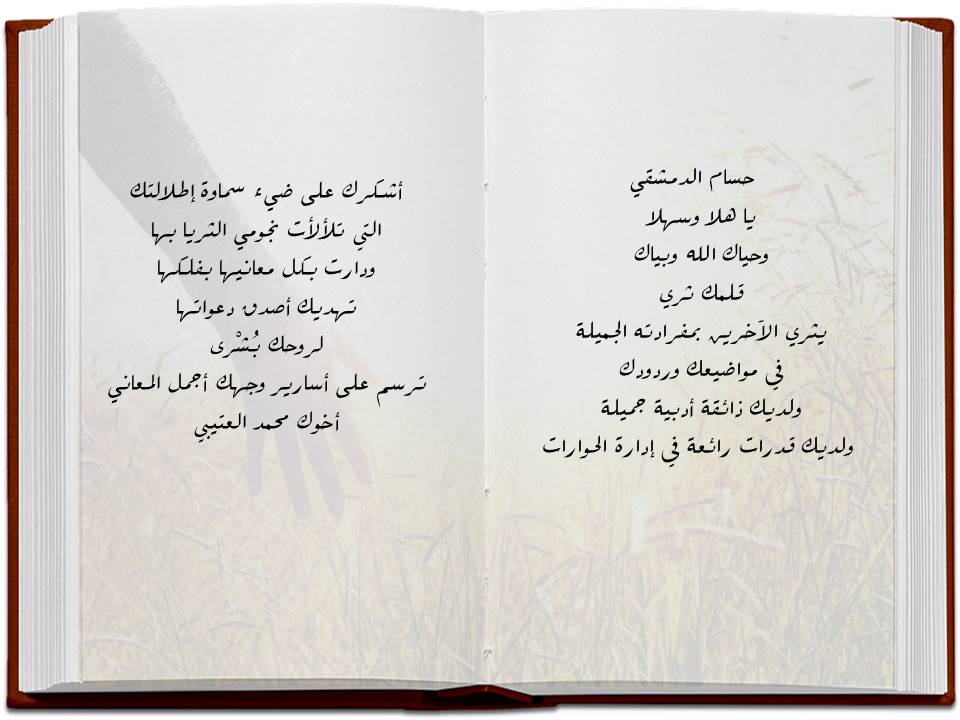 حسام الدمشقي
يا هلا وسهلا
وحياك الله وبياك
قلمك ثري
يثري الآخرين بمفرادته الجميلة
في مواضيعك وردودك
ولديك ذائقة أدبية جميلة
ولديك قدرات رائعة في إدارة الحوارات
أشكرك على ضيء سماوة إطلالتك
التي تلألأت نجومي الثريا بها
ودارت بكل معانيها بفلكها
تهديك أصدق دعواتها
لروحك بُشْرى
ترسم على أسارير وجهك أجمل المعاني
أخوك محمد العتيبي